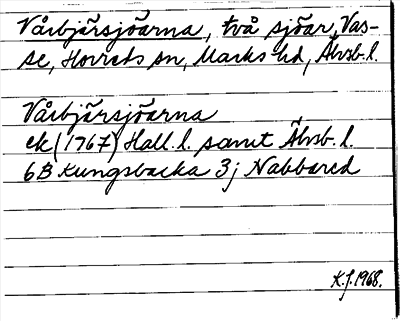 Vårbjärsjöarna, två sjöar, Vas-
se, Horreds sn, Marks hd, Älvsb. l.
Vårbjärsjöarna
ek (1767) Hall. l. samt Älvsb. l.
6B Kungsbacka 3j Nabbared
K.J. 1968.